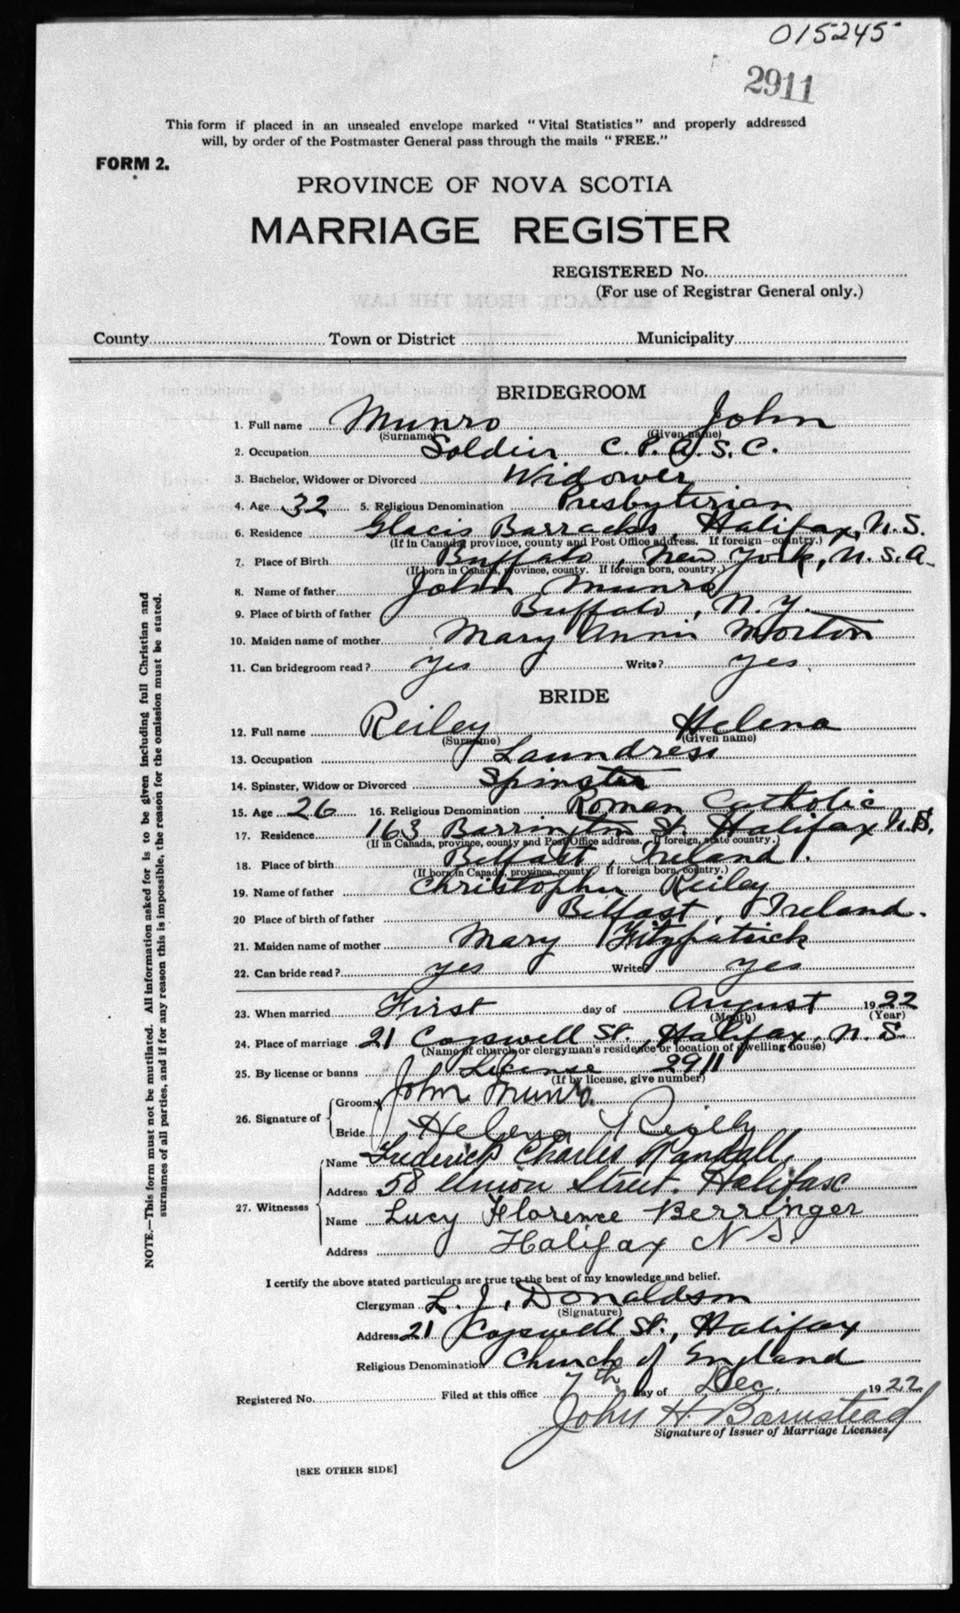 015245
2911
This form if placed in an unsealed envelope marked "Vital Statistics" and properly addressed
will, by order of the Postmaster General pass through the mails "FREE."
FORM 2.
PROVINCE OF NOVA SCOTIA
MARRIAGE REGISTER
REGISTERED No.
(For use of Registrar General only.)
County Town or District Municipality
BRIDEGROOM
1. Full name Munro John
(Surname) (Given name)
2. Occupation Soldier C.P.A.S.C.
3. Bachelor, Widower or Divorced Widower
4. Age 32 5. Religious Denomination Presbyterian
6. Residence Glacis Barracks, Halifax, N.S.
(If in Canada, province, county and Post Office address. If foreign—country.)
7. Place of Birth Buffalo, New York, U.S.A.
(If born in Canada, province, county. If foreign born, country.)
8. Name of father John Munro
9. Place of birth of father Buffalo, N.Y.
10. Maiden name of mother Mary Annie Morton
11. Can bridegroom read? yes Write? yes.
BRIDE
12. Full name Reiley Helena
(Surname) (Given name)
13. Occupation Laundress
14. Spinster, Widow or Divorced Spinster
15. Age 26 16. Religious Denomination Roman Catholic
17. Residence 163 Barrington St. Halifax N.S.
(If in Canada, province, county and Post Office address. If foreign, state country.)
18. Place of birth Belfast, Ireland.
(If born in Canada, province, county. If foreign born, country.)
19. Name of father Christopher Reiley
20 Place of birth of father Belfast, Ireland.
21. Maiden name of mother Mary Fitzpatrick
22. Can bride read? yes Write? yes
23. When married First day of August 1922
(Month) (Year)
24. Place of marriage 21 Cogswell St., Halifax, N.S.
(Name of church or clergyman's residence or location of dwelling house)
25. By license or banns License 2911
(If by license, give number)
26. Signature of Groom John Munro.
Bride Helena Reilly
27. Witnesses Name Frederick Charles Randall.
Address 58 Union Street. Halifax
Name Lucy Florence Berringer
Address Halifax N.S.
I certify the above stated particulars are true to the best of my knowledge and belief.
Clergyman L. J. Donaldson
(Signature)
Address 21 Cogswell St., Halifax
Religious Denomination Church of England
Registered No. Filed at this office 7th day of Dec. 1922
John H. Barnstead
Signature of Issuer of Marriage Licenses
[SEE OTHER SIDE]
NOTE.—This form must not be mutilated. All information asked for is to be given including full Christian and
surnames of all parties, and if for any reason this is impossible, the reason for the omission must be stated.